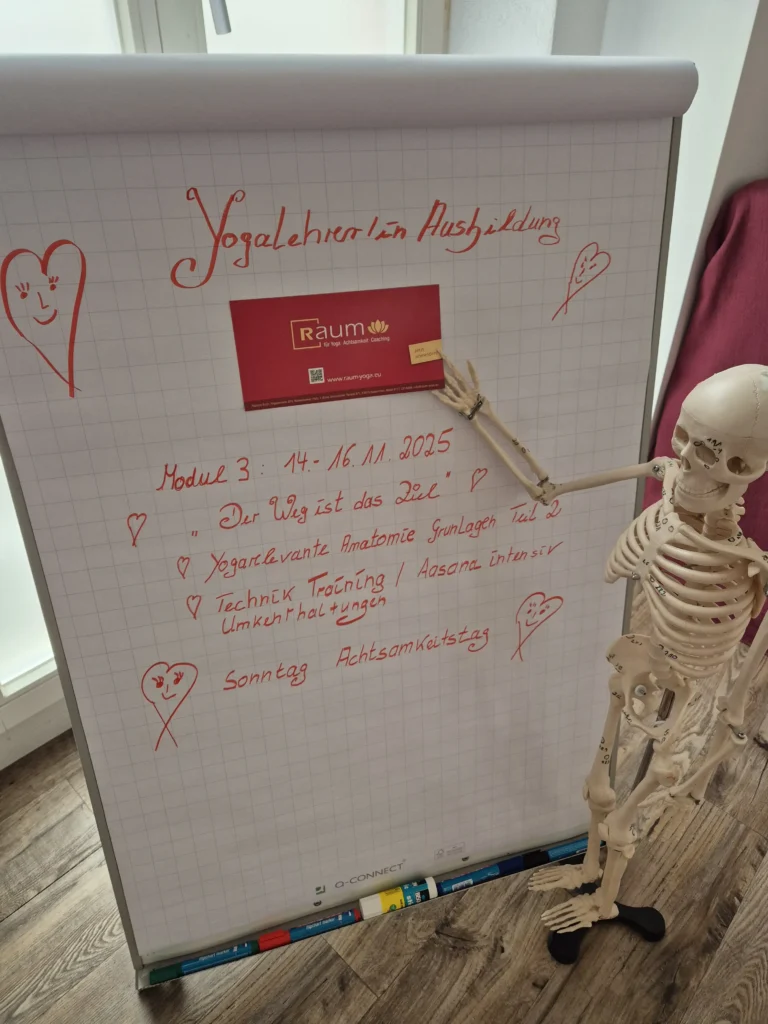 Yogalehrer/in Ausbildung
Raum
für Yoga Achtsamkeit Coaching
www.raumyoga.eu
Modul 3: 14.- 16.11.2025
"Der Weg ist das Ziel"
Yogarelevante Anatomie Grunlagen Teil 2
Technik Training / Aasana intensiv
Umkehrhaltungen
Sonntag Achtsamkeitstag
Q-CONNECT